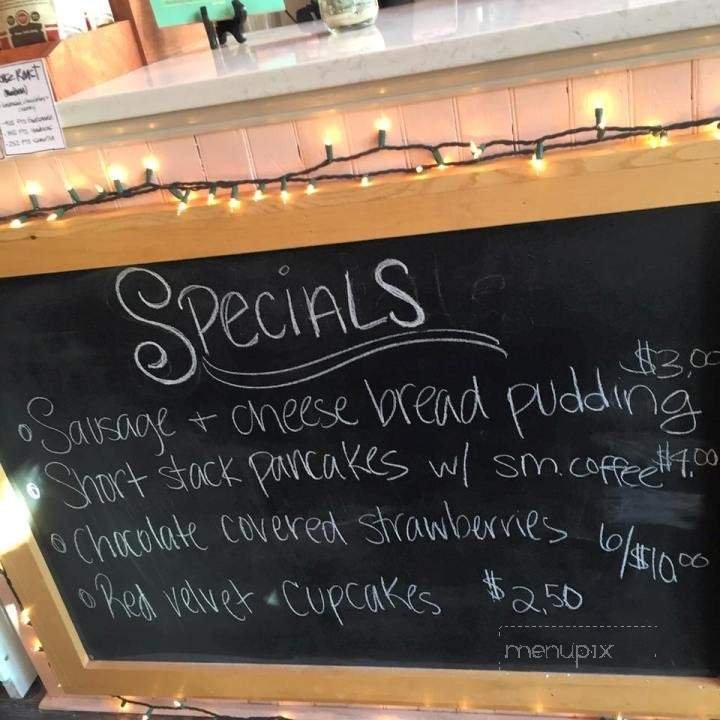 SPECiALS
$3.00
Sausage + cheese bread pudding
Short stack pancakes w/ sm. coffee $4.00
Chocolate covered strawberries 6/$10.00
Red velvet cupcakes $2.50
menupix